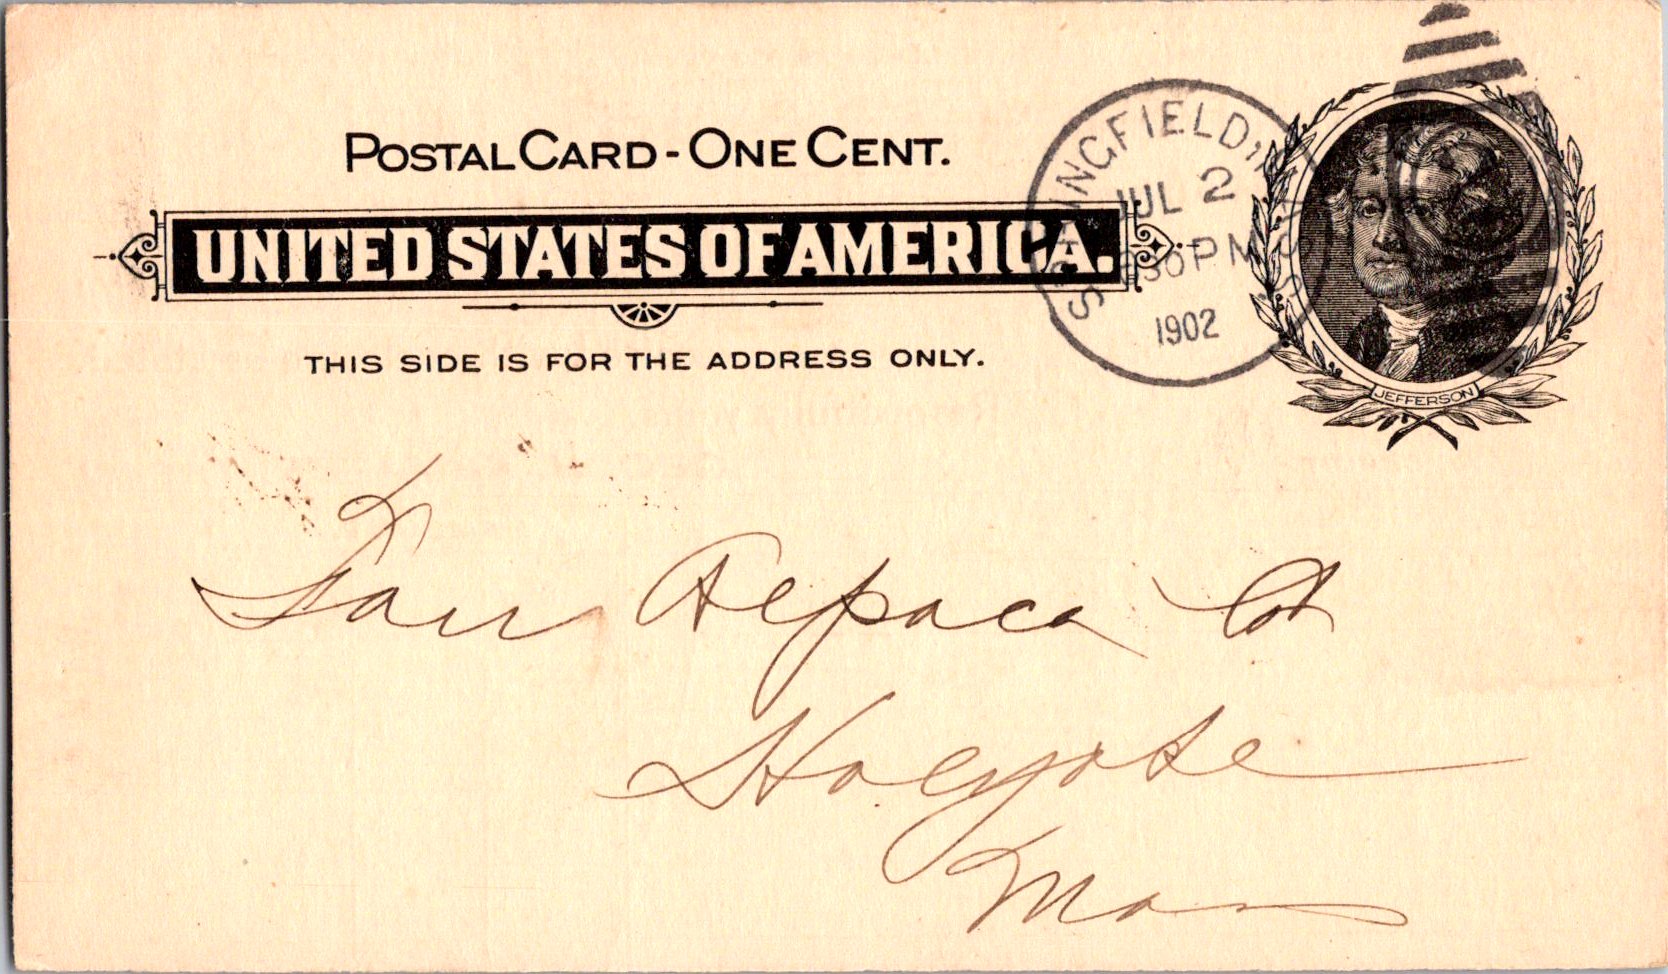 POSTAL CARD - ONE CENT.
UNITED STATES OF AMERICA.
THIS SIDE IS FOR THE ADDRESS ONLY.
SPRINGFIELD, MASS.
JUL 2
30 PM
1902
JEFFERSON
Farr Alpaca Co
Holyoke
Mass